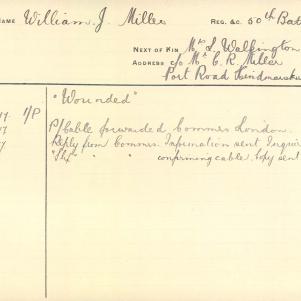 NAME William. J. Miller REG. &C. 50th Bat
NEXT OF KIN Mrs L. Wallington
ADDRESS c/o Mr C. R. Miller
Port Road Hindmarsh
"Wounded"
17. 1/P P/Cable forwarded Commrs London.
17 Reply from Commrs. Information sent
7 " " confirming cable. Copy sent